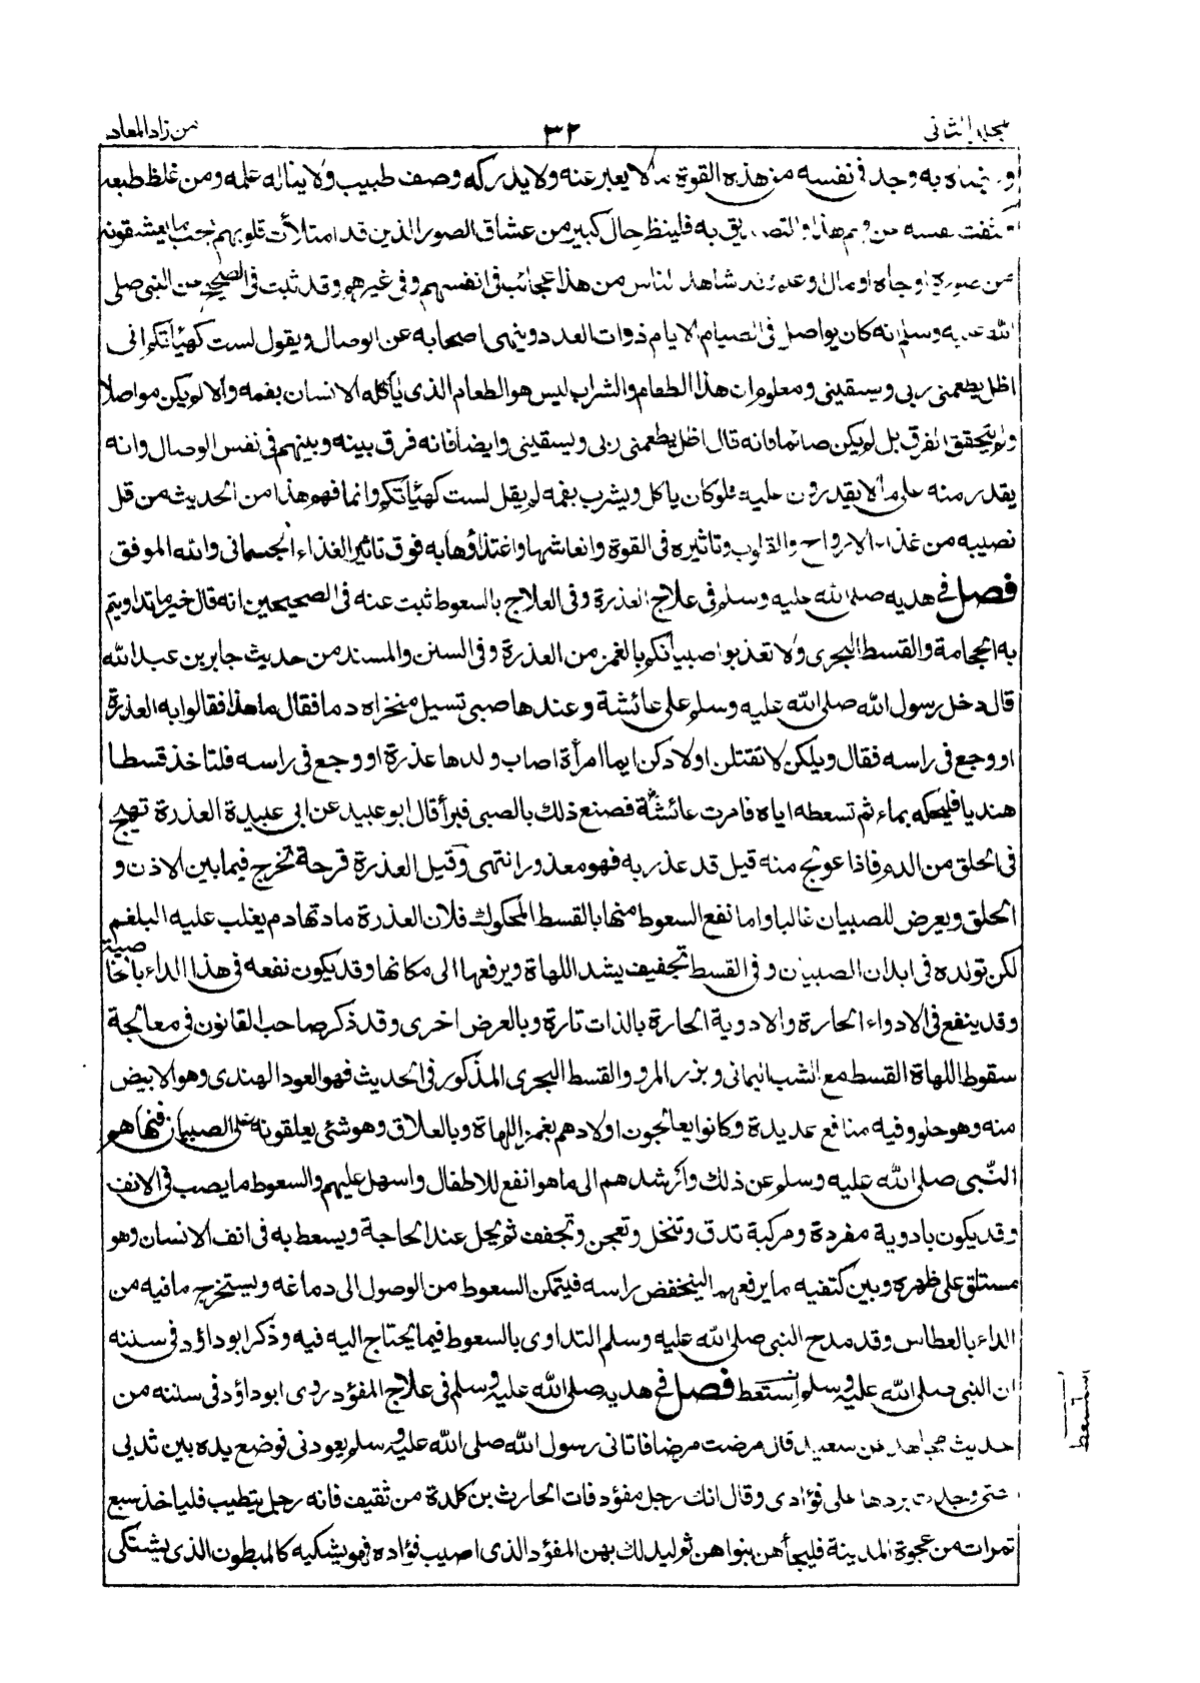 المجلد الثانى ٣٢ من زاد المعاد
به وجد فى نفسه من هذه القوة ما لا يعبر عنه ولا يدركه وصف طبيب ولا يناله علمه ومن غلظ طبعه
نفسه عن فهم هذا والتصديق به فلينظر حال كبير من عشاق الصور الذين قد امتلأت قلوبهم بحب ما يعشقونه
من صورة او جاه او مال او علم وقد شاهد الناس من هذا عجائب فى انفسهم وفى غيرهم وقد ثبت فى الصحيح عن النبى صلى
الله عليه وسلم انه كان يواصل فى الصيام الايام ذوات العدد وينهى اصحابه عن الوصال ويقول لست كهيأتكم انى
اظل يطعمنى ربى ويسقينى ومعلوم ان هذا الطعام والشراب ليس هو الطعام الذى يأكله الانسان بفمه والا لم يكن مواصلا
ولم يتحقق الفرق بل لم يكن صائما فانه قال اظل يطعمنى ربى ويسقينى وايضا فانه فرق بينه وبينهم فى نفس الوصال وانه
يقدر منه على ما لا يقدرون عليه فلو كان ياكل ويشرب بفمه لم يقل لست كهيأتكم وانما فهم هذا من الحديث من قل
نصيبه من غذاء الارواح والقلوب وتاثيره فى القوة وانعاشها واغتذاؤها به فوق تاثير الغذاء الجسمانى والله الموفق
فصل فى هديه صلى الله عليه وسلم فى علاج العذرة وفى العلاج بالسعوط ثبت عنه فى الصحيحين انه قال خير ما تداويتم
به الحجامة والقسط البحرى ولا تعذبوا صبيانكم بالغمز من العذرة وفى السنن والمسند من حديث جابر بن عبد الله
قال دخل رسول الله صلى الله عليه وسلم على عائشة وعندها صبى تسيل منخراه دما فقال ما هذا فقالوا به العذرة
او وجع فى راسه فقال ويلكن لا تقتلن اولادكن ايما امرأة اصاب ولدها عذرة او وجع فى راسه فلتاخذ قسطا
هنديا فليحكه بماء ثم تسعطه اياه فامرت عائشة فصنع ذلك بالصبى فبرأ قال ابو عبيد عن ابى عبيدة العذرة تهيج
فى الحلق من الدم فاذا عولج منه قيل قد عذر به فهو معذور انتهى وقيل العذرة قرحة تخرج فيما بين الاذن و
الحلق ويعرض للصبيان غالبا واما نفع السعوط منها بالقسط المحكوك فلان العذرة مادتها دم يغلب عليه البلغم
لكن تولده فى ابدان الصبيان وفى القسط تجفيف يشد اللهاة ويرفعها الى مكانها وقد يكون نفعه فى هذا الداء بالخاصية
وقد ينفع فى الادواء الحارة والادوية الحارة بالذات تارة وبالعرض اخرى وقد ذكر صاحب القانون فى معالجة
سقوط اللهاة القسط مع الشب اليمانى وبزر المرو والقسط البحرى المذكور فى الحديث فهو العود الهندى وهو الابيض
منه وهو حلو وفيه منافع عديدة وكانوا يعالجون اولادهم بغمز اللهاة وبالعلاق وهو شئ يعلقونه على الصبيان فنهاهم
النبى صلى الله عليه وسلم عن ذلك وارشدهم الى ما هو انفع للاطفال واسهل عليهم والسعوط ما يصب فى الانف
وقد يكون بادوية مفردة ومركبة تدق وتنخل وتعجن وتجفف ثم يحل عند الحاجة ويسعط به فى انف الانسان وهو
مستلق على ظهره وبين كتفيه ما يرفعهما لينخفض راسه فيتمكن السعوط من الوصول الى دماغه ويستخرج ما فيه من
الداء بالعطاس وقد مدح النبى صلى الله عليه وسلم التداوى بالسعوط فيما يحتاج اليه فيه وذكر ابو داؤد فى سننه
ان النبى صلى الله عليه وسلم استعط فصل فى هديه صلى الله عليه وسلم فى علاج المفؤد روى ابو داؤد فى سننه من
حديث مجاهد عن سعيد قال مرضت مرضا فاتانى رسول الله صلى الله عليه وسلم يعودنى فوضع يده بين ثديى
حتى وجدت بردها على فؤادى وقال انك رجل مفؤد فات الحارث بن كلدة من ثقيف فانه رجل يتطيب فلياخذ سبع
تمرات من عجوة المدينة فليجأهن بنواهن ثم ليدلك بهن المفؤد الذى اصيب فؤاده فهو يشكيه كالمبطون الذى يشتكى
استعط